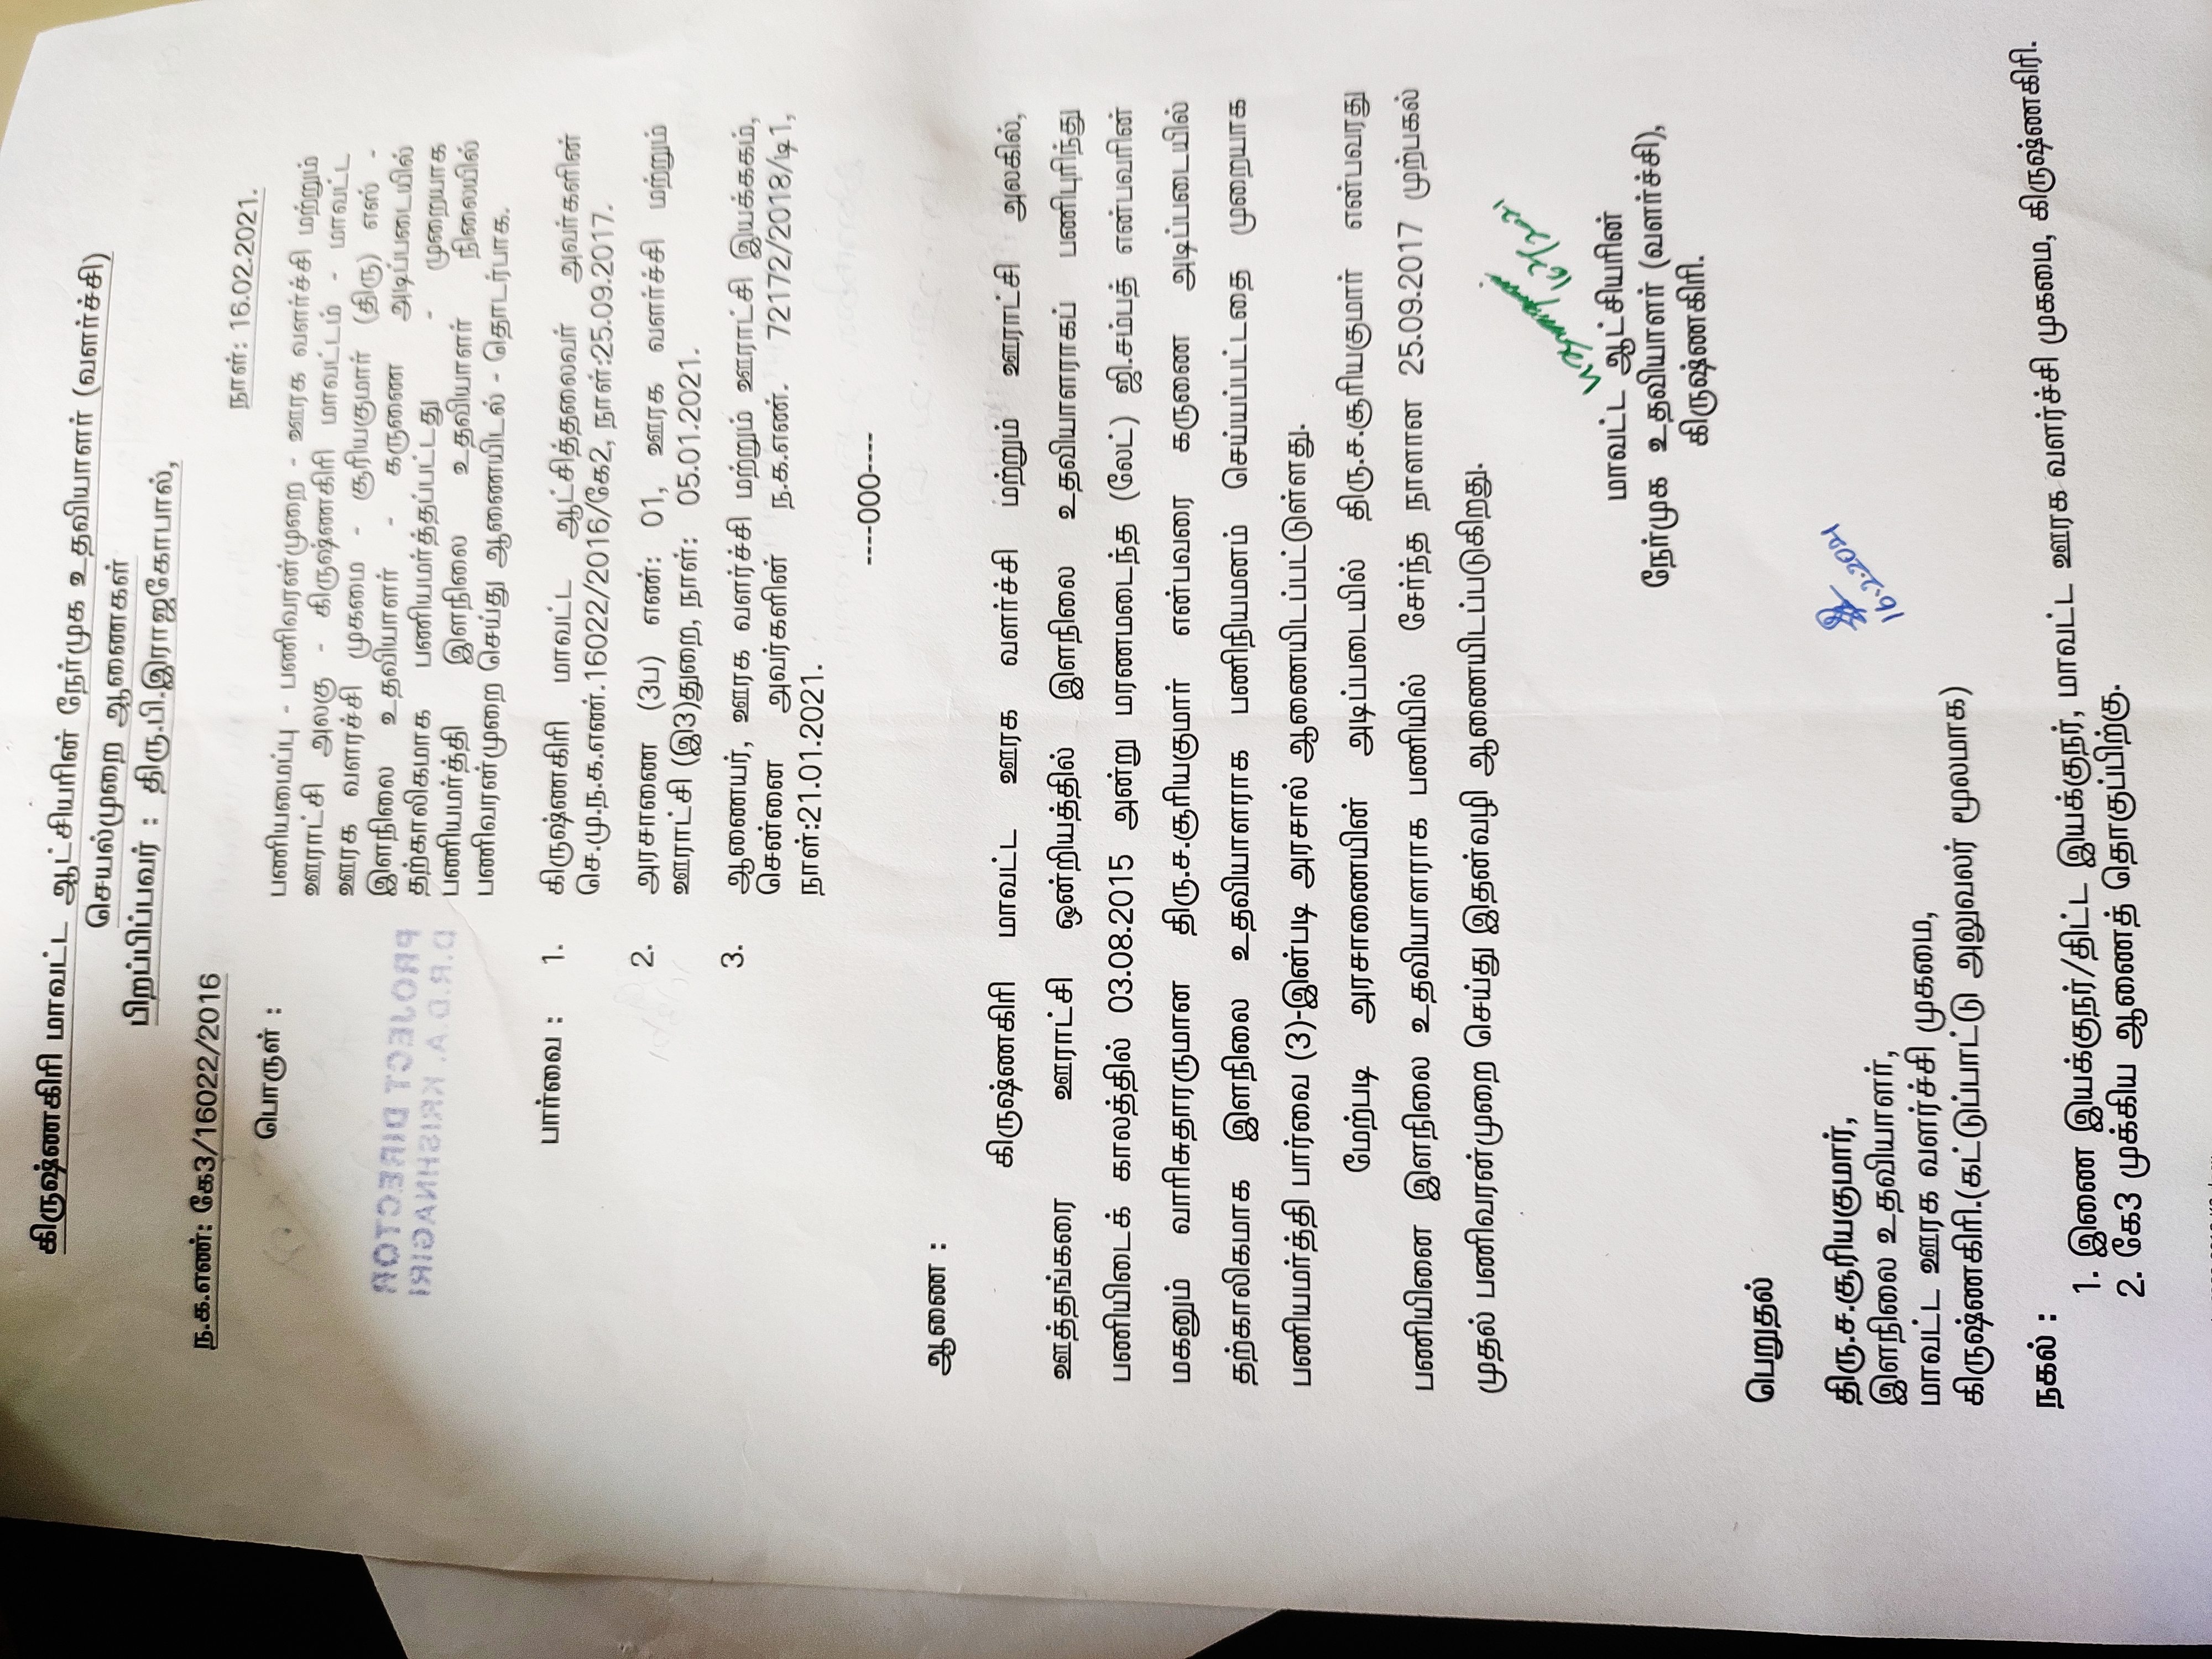 கிருஷ்ணகிரி மாவட்ட ஆட்சியரின் நேர்முக உதவியாளர் (வளர்ச்சி)
செயல்முறை ஆணைகள்
பிறப்பிப்பவர் : திரு.பி.இராஜகோபால்,
ந.க.எண்: கே3/16022/2016
நாள்: 16.02.2021.
பொருள் :
பணியமைப்பு - பணிவரன்முறை - ஊரக வளர்ச்சி மற்றும்
ஊராட்சி அலகு - கிருஷ்ணகிரி மாவட்டம் - மாவட்ட
ஊரக வளரச்சி முகமை - சூரியகுமார் (திரு) எஸ் -
இளநிலை உதவியாளர் - கருணை அடிப்படையில்
தற்காலிகமாக பணியமர்த்தப்பட்டது - முறையாக
பணியமர்த்தி இளநிலை உதவியாளர் நிலையில்
பணிவரன்முறை செய்து ஆணையிடல் - தொடர்பாக.
PROJECT DIRECTOR
D.R.D.A. KRISHNAGIRI
பார்வை :
1. கிருஷ்ணகிரி மாவட்ட ஆட்சித்தலைவர் அவர்களின்
செ.மு.ந.க.எண்.16022/2016/கே2, நாள்:25.09.2017.
2. அரசாணை (3ப) எண்: 01, ஊரக வளர்ச்சி மற்றும்
ஊராட்சி (இ3)துறை, நாள்: 05.01.2021.
3. ஆணையர், ஊரக வளர்ச்சி மற்றும் ஊராட்சி இயக்ககம்,
சென்னை அவர்களின் ந.க.எண். 72172/2018/டி1,
நாள்:21.01.2021.
----000----
ஆணை :
கிருஷ்ணகிரி மாவட்ட ஊரக வளர்ச்சி மற்றும் ஊராட்சி அலகில்,
ஊத்தங்கரை ஊராட்சி ஒன்றியத்தில் இளநிலை உதவியாளராகப் பணிபுரிந்து
பணியிடைக் காலத்தில் 03.08.2015 அன்று மரணமடைந்த (லேட்) ஜி.சம்பத் என்பவரின்
மகனும் வாரிசுதாரருமான திரு.ச.சூரியகுமார் என்பவரை கருணை அடிப்படையில்
தற்காலிகமாக இளநிலை உதவியாளராக பணிநியமனம் செய்யப்பட்டதை முறையாக
பணியமர்த்தி பார்வை (3)-இன்படி அரசால் ஆணையிடப்பட்டுள்ளது.
மேற்படி அரசாணையின் அடிப்படையில் திரு.ச.சூரியகுமார் என்பவரது
பணியினை இளநிலை உதவியாளராக பணியில் சேர்ந்த நாளான 25.09.2017 முற்பகல்
முதல் பணிவரன்முறை செய்து இதன்வழி ஆணையிடப்படுகிறது.
மாவட்ட ஆட்சியரின்
நேர்முக உதவியாளர் (வளர்ச்சி),
கிருஷ்ணகிரி.
16.2.2021
பெறுதல்
திரு.ச.சூரியகுமார்,
இளநிலை உதவியாளர்,
மாவட்ட ஊரக வளர்ச்சி முகமை,
கிருஷ்ணகிரி.(கட்டுப்பாட்டு அலுவலர் மூலமாக)
நகல் :
1. இணை இயக்குநர்/திட்ட இயக்குநர், மாவட்ட ஊரக வளர்ச்சி முகமை, கிருஷ்ணகிரி.
2. கே3 முக்கிய ஆணைத் தொகுப்பிற்கு.